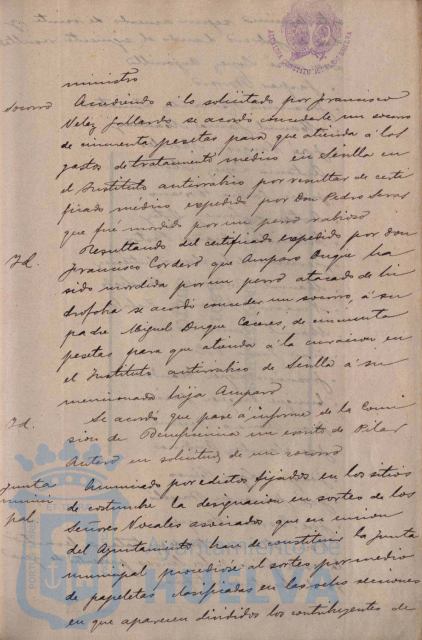 ministro
Socorro Accediendo á lo solicitado por Francisco
Velez Gallardo se acordó concederle un socorro
de cincuenta pesetas para que atienda á los
gastos de tratamiento médico en Sevilla en
el Instituto antirrábico por resultar de certi
ficado médico expedido por Don Pedro Seras
que fué mordido por un perro rabioso
Id. Resultando del certificado expedido por don
Francisco Cordero que Amparo Duque ha
sido mordida por un perro atacado de hi
drofobia se acordó conceder un socorro, á su
padre Miguel Duque Cáceres, de cincuenta
pesetas para que atienda á la curacion en
el Instituto antirrabico de Sevilla á su
mencionada hija Amparo
Id. Se acordó que pase á informe de la Comi
sion de Beneficencia un escrito de Pilar
Autero en solicitud de un socorro
Junta Anunciado por edictos fijados en los sitios
munici de costumbre la designacion en sorteo de los
pal. Señores Vocales asociados que en union
del Ayuntamiento han de constituir la Junta
municipal procediose al sorteo por medio
de papeletas clasificadas en las ocho secciones
en que aparecen divididos los contribuyentes de
Ayuntamiento de
HUELVA